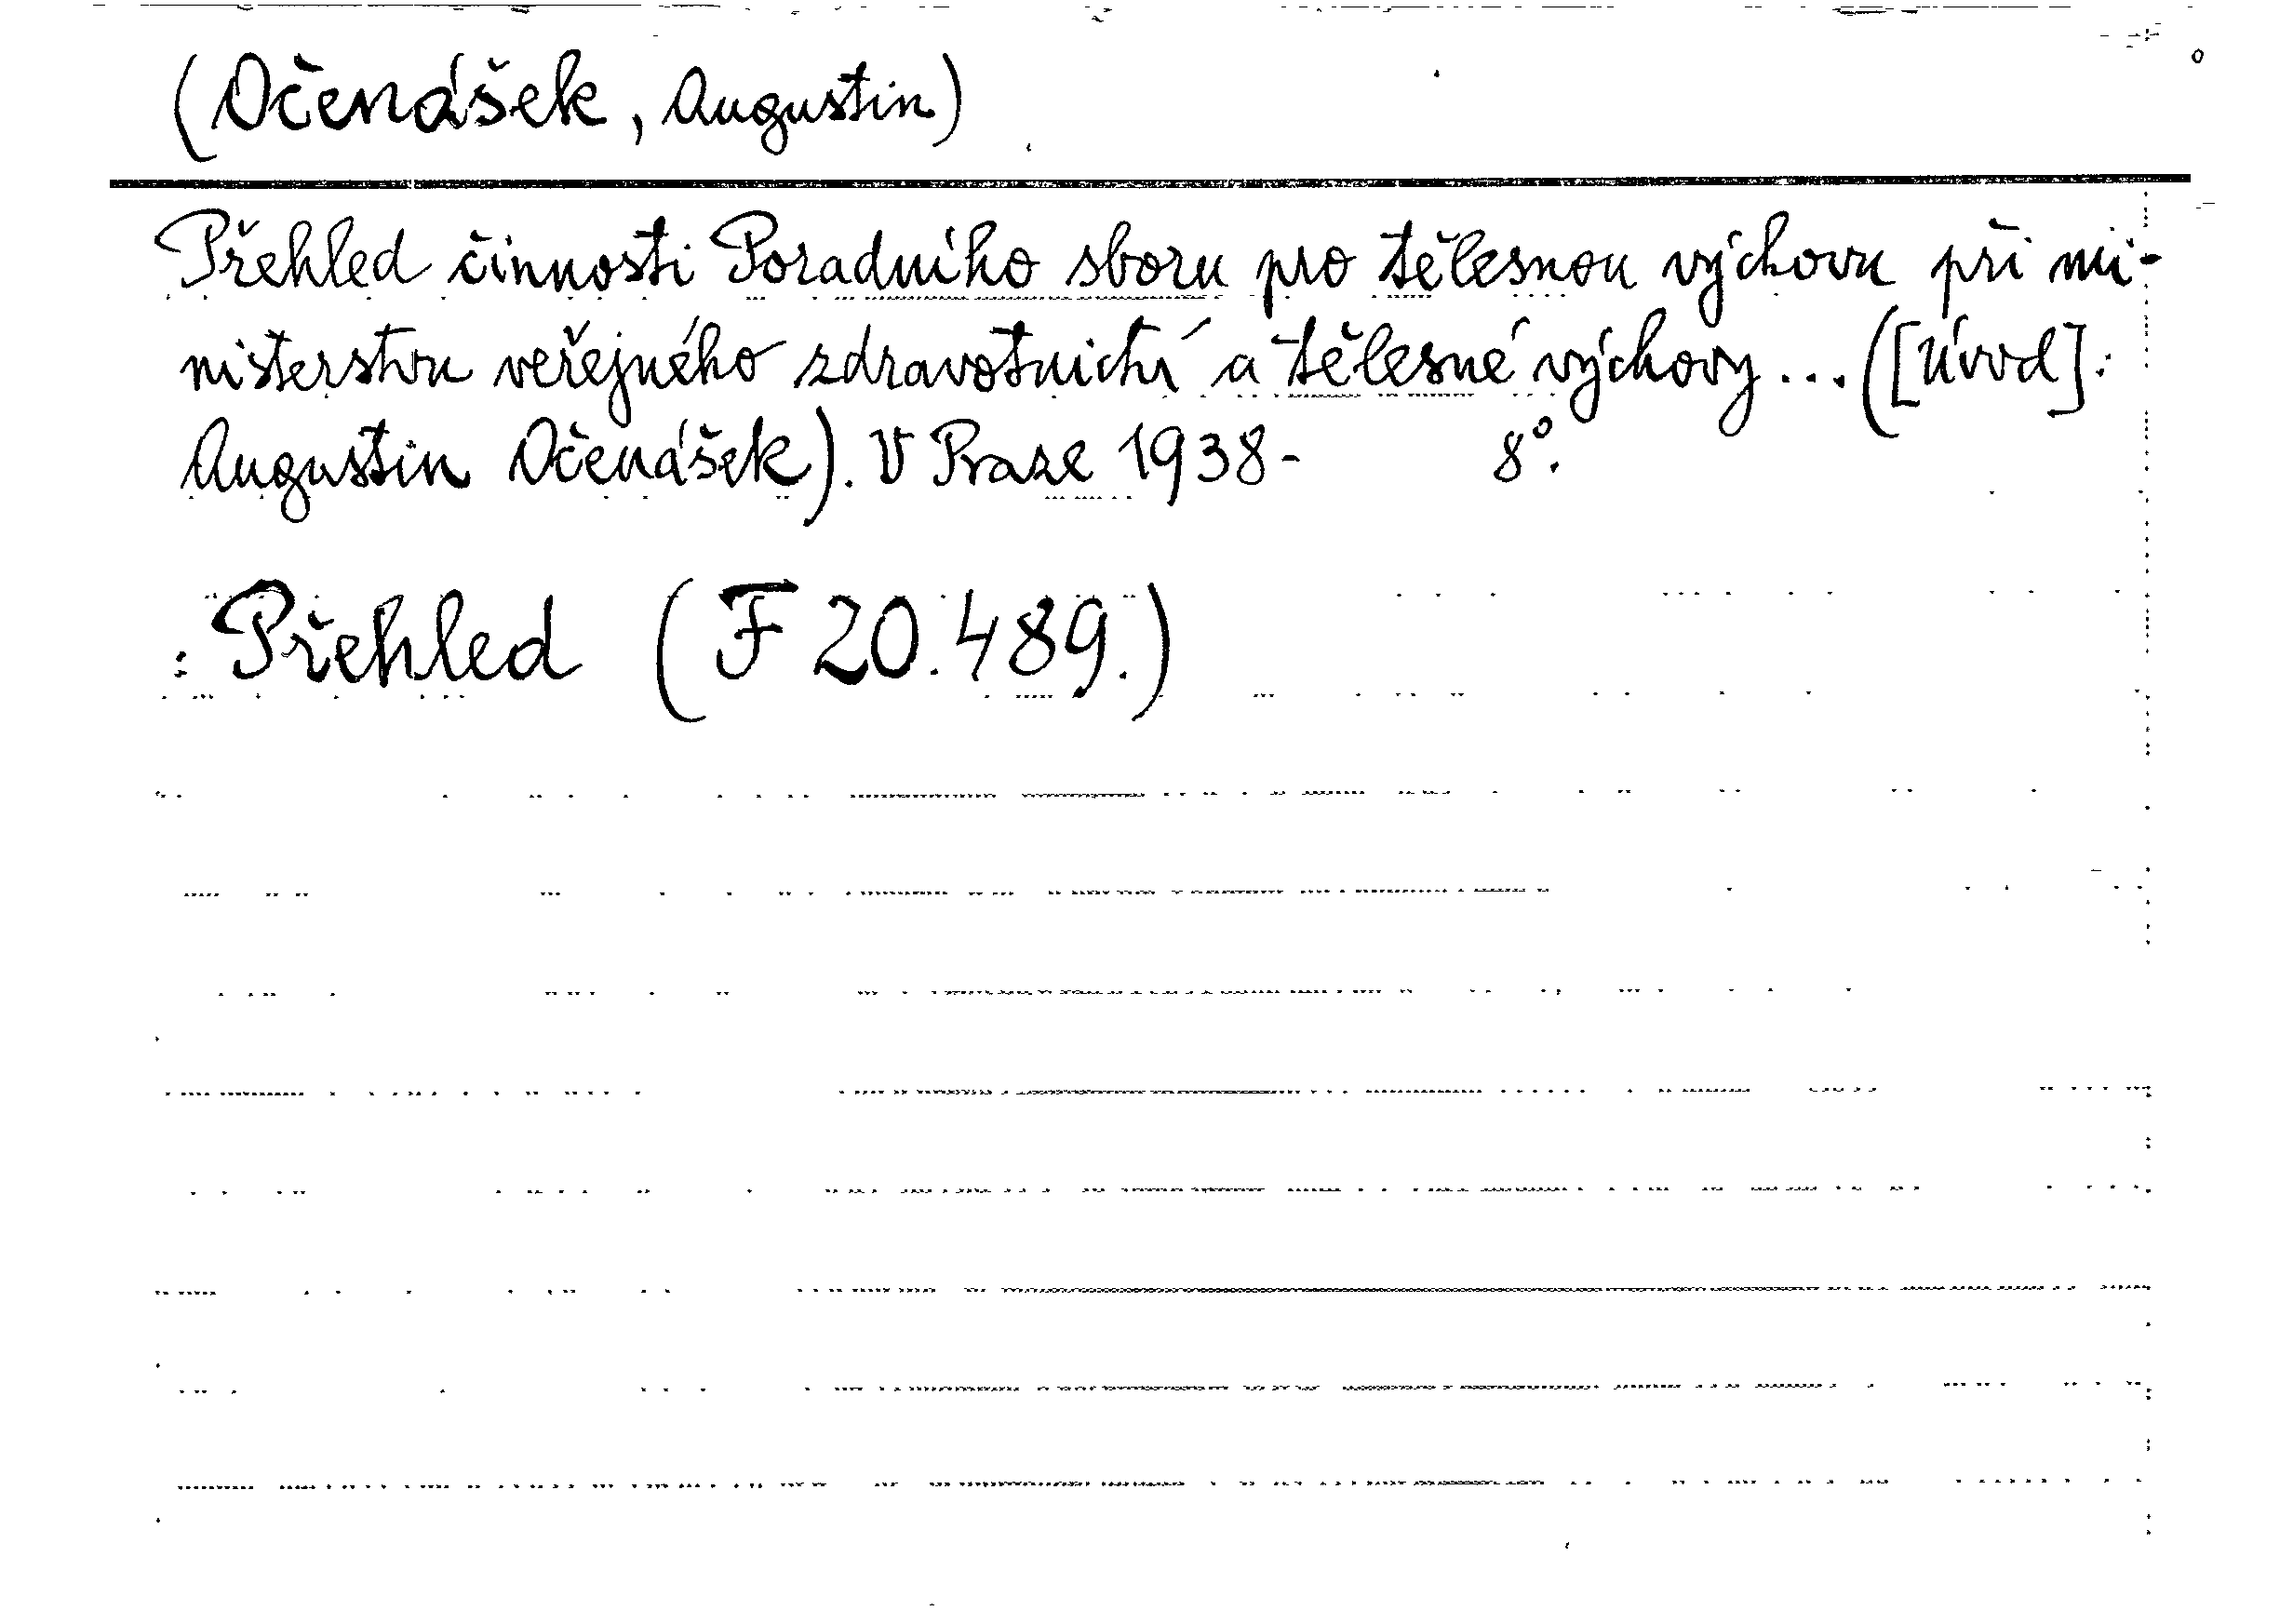 (Očenášek, Augustin)
Přehled činnosti Poradního sboru pro tělesnou výchovu při mi-
nisterstvu veřejného zdravotnictví a tělesné výchovy... ([Úvod]:
Augustin Očenášek). V Praze 1938- 8°.
: Přehled (F 20.489.)